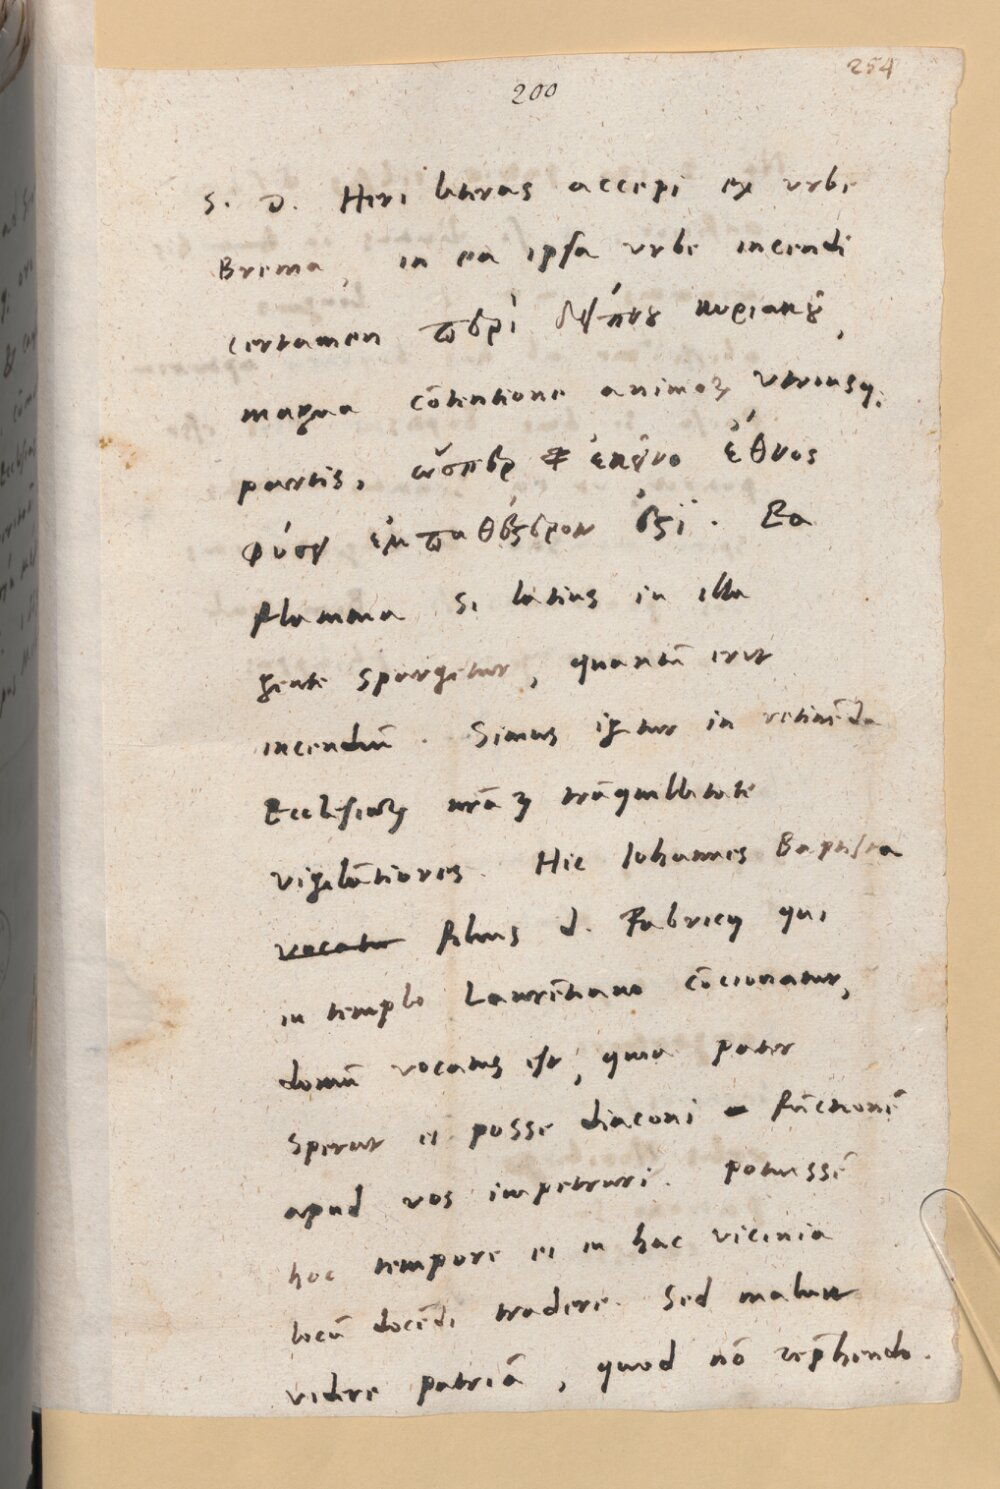 254
200
S. D. Heri literas accepi ex vrbe
Brema, in ea ipsa vrbe incendi
certamen περὶ δείπνου κυριακοῦ,
magna cōtentione animoꝝ vtriusq;
partis, ὥσπερ ἐκεῖνο ἔθνος
φύσει ἐμπαθέστερον ἐστί. Ea
flamma si latius in illa
gente spargetur, quantū erit
incendiū. Simus igitur in retinēda
Ecclesiaꝝ nrāꝝ trāquillitate
vigilātiores. Hic Iohannes Baptista
vocatur filius d. Fabricij qui
in templo Laurētiano cōcionatur,
domū vocatus est, quia pater
sperat ei posse diaconi fūctionē
apud vos impetrari. potuissē
hoc tempore ei in hac vicinia
locū docēdi tradere. Sed maluit
videre patriā, quod nō reprehendo.